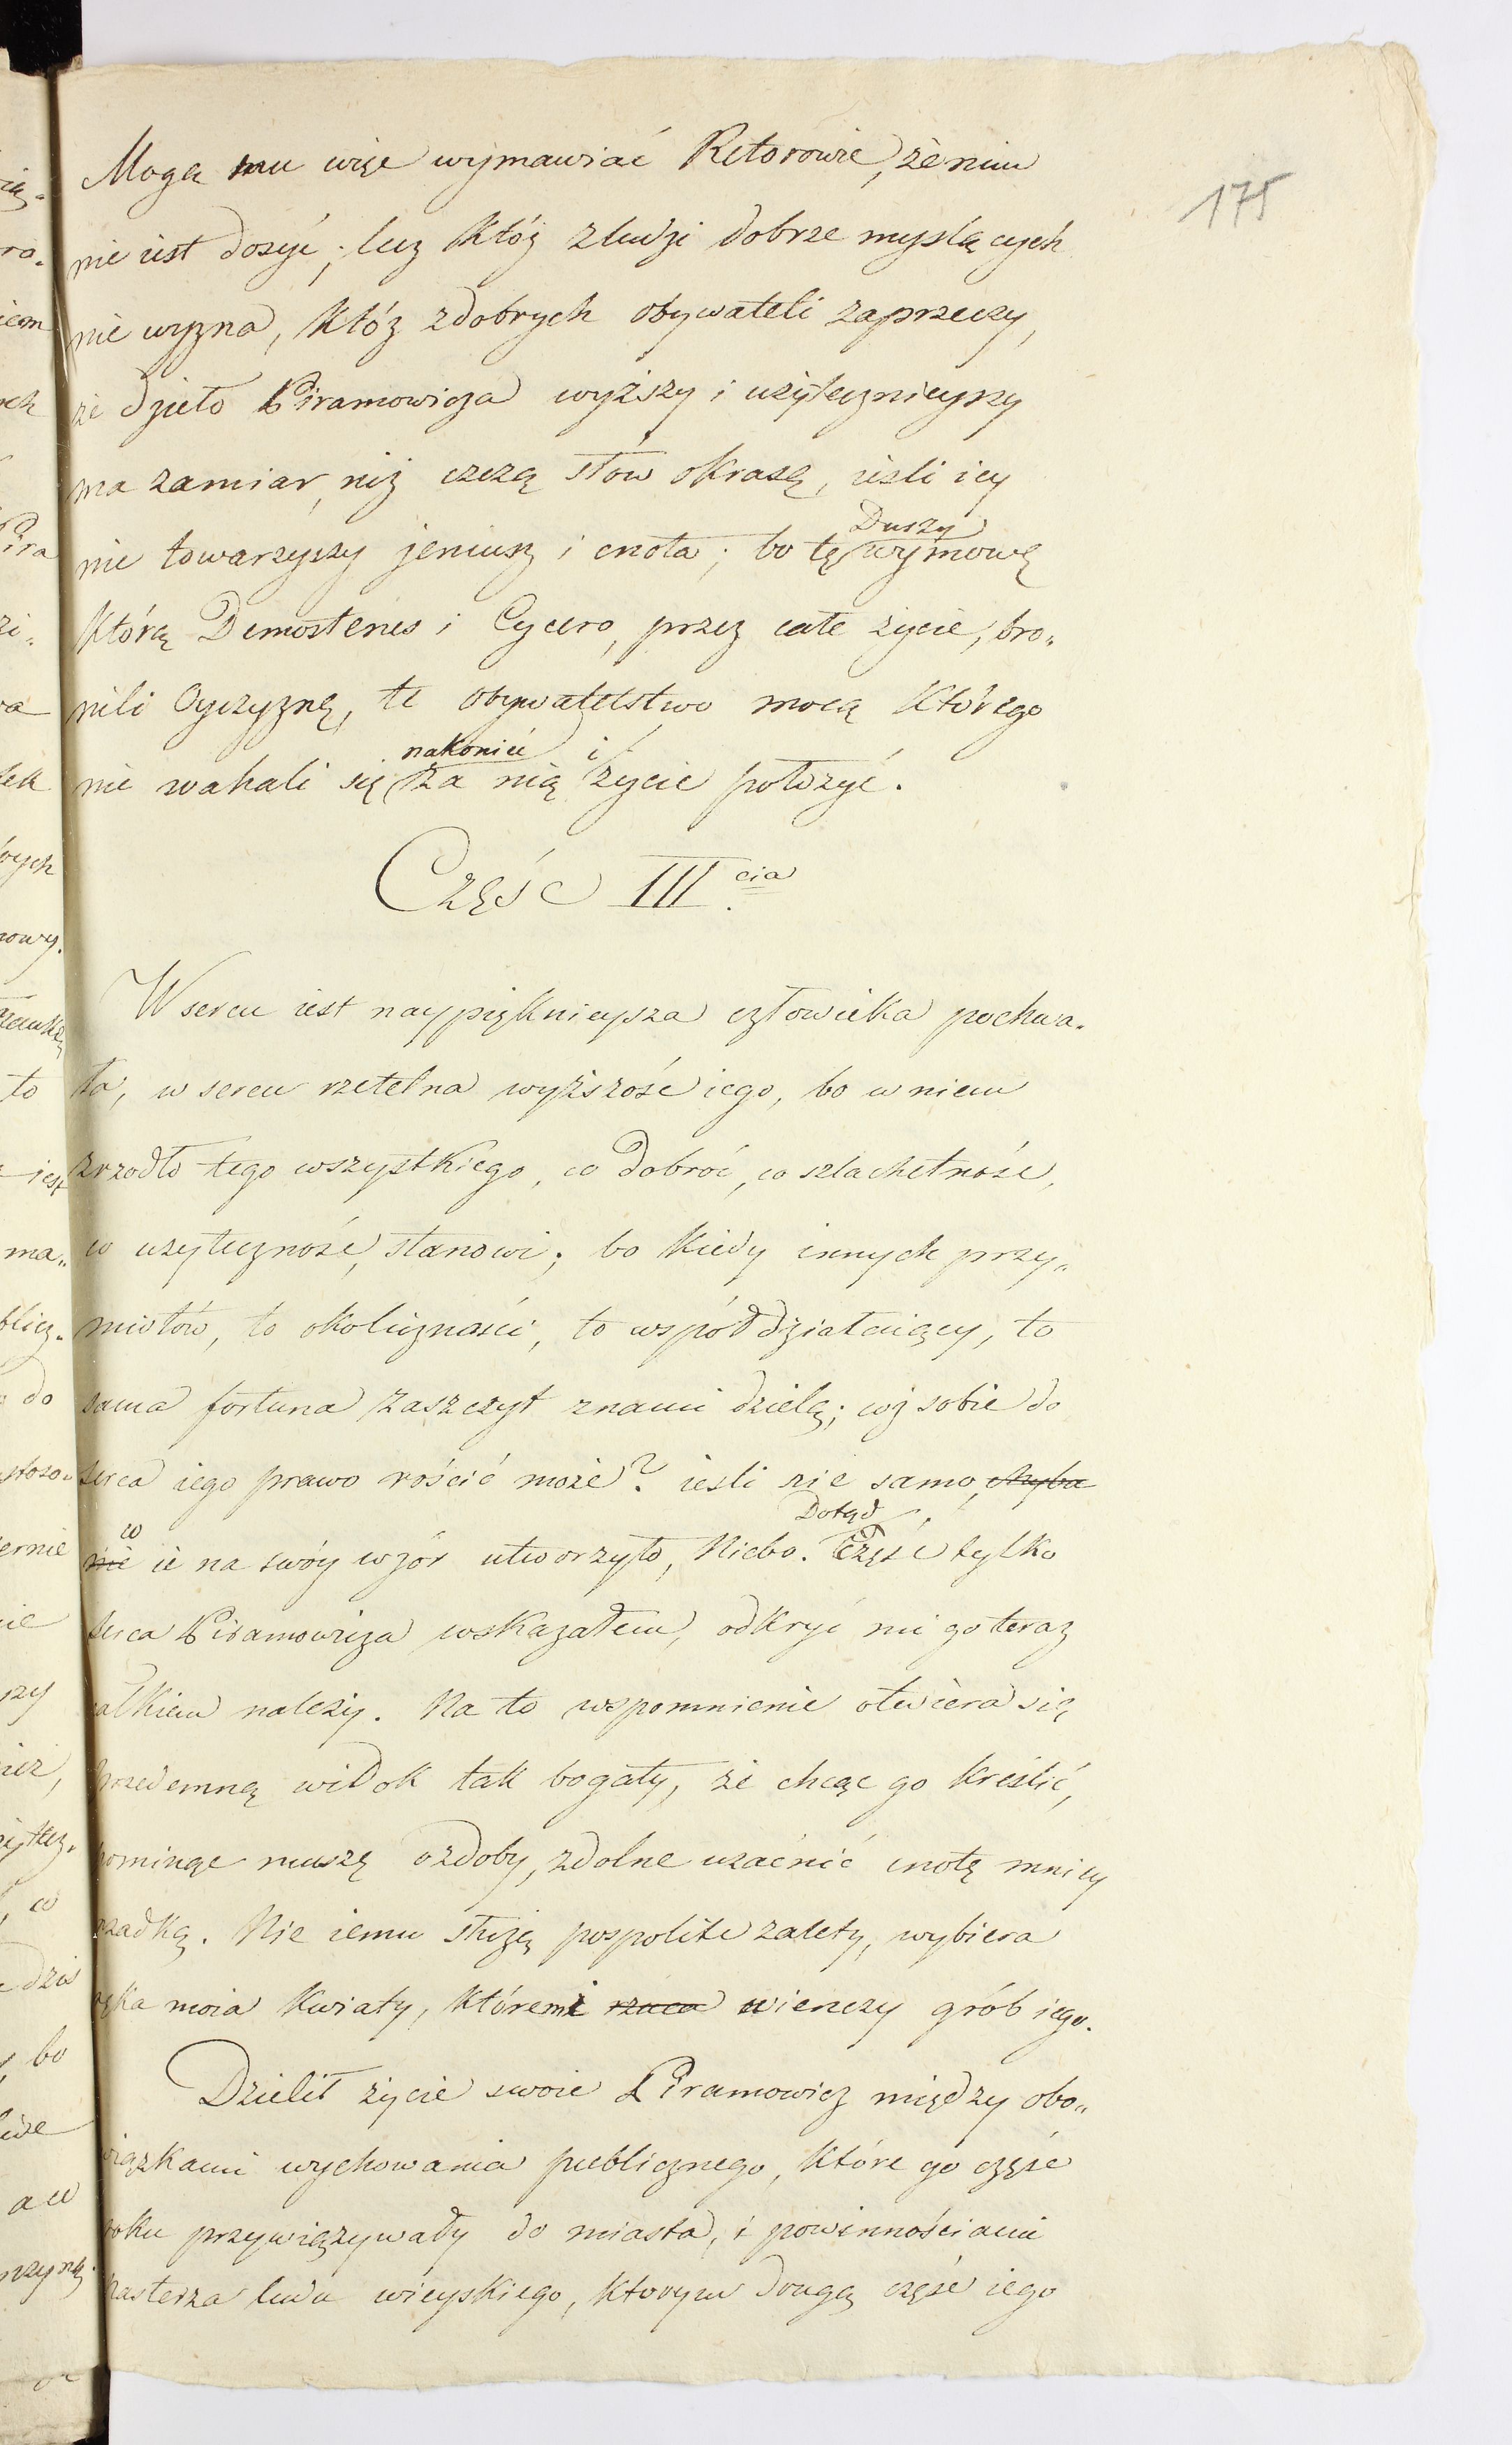 175
Mogą mu więc wymawiać Retorowie, że nim
nie iest dosyć; lecz któż z ludzi dobrze myślących
nie wyzna, któż z dobrych obywateli zaprzeczy,
że dzieło Piramowicza wyższy i użytecznieyszy
ma zamiar, niż czczą słów okrasę, ieśli iey
nie towarzyszy jeniusz i cnota; bo tę wymowę
Duszy
którą Demostenes i Cycero, przez całe życie, bro„
nili Oyczyznę, te obywatelstwo mocą którego
nakoniec i
nie wahali się za nią życie położyć.
Część III cia.
W sercu iest naypięknieysza człowieka pochwa„
ła, w sercu rzetelna wyższość iego, bo w niem
zrzodło tego wszystkiego, co dobroć, co szlachetność,
co użyteczność, stanowi; bo kiedy innych przy„
miotów, to okoliczności, to współdziałaiący, to
sama fortuna zaszczyt z nami dzielą; coż sobie do
serca iego prawo rościć może? ieśli nie samo, chyba
co Dotąd
nie ie na swóy wzór utworzyło, Niebo. część tylko
serca Piramowicza wskazałem, odkryć mi go teraz
całkiem należy. Na to wspomnienie otwiera się
przedemną widok tak bogaty, że chcąc go kreślić,
pominąć muszę ozdoby, zdolne uzacnić cnotę mniey
rzadką. Nie iemu służą pospolite zalety, wybiera
ręka moia kwiaty, któremi rzuca wienczy grób iego.
Dzielił życie swoie Piramowicz między obo„
wiązkami wychowania publicznego, które go część
roku przywięzywały do miasta, i powinnościami
Pasterza ludu wieyskiego, którym drugą część iego